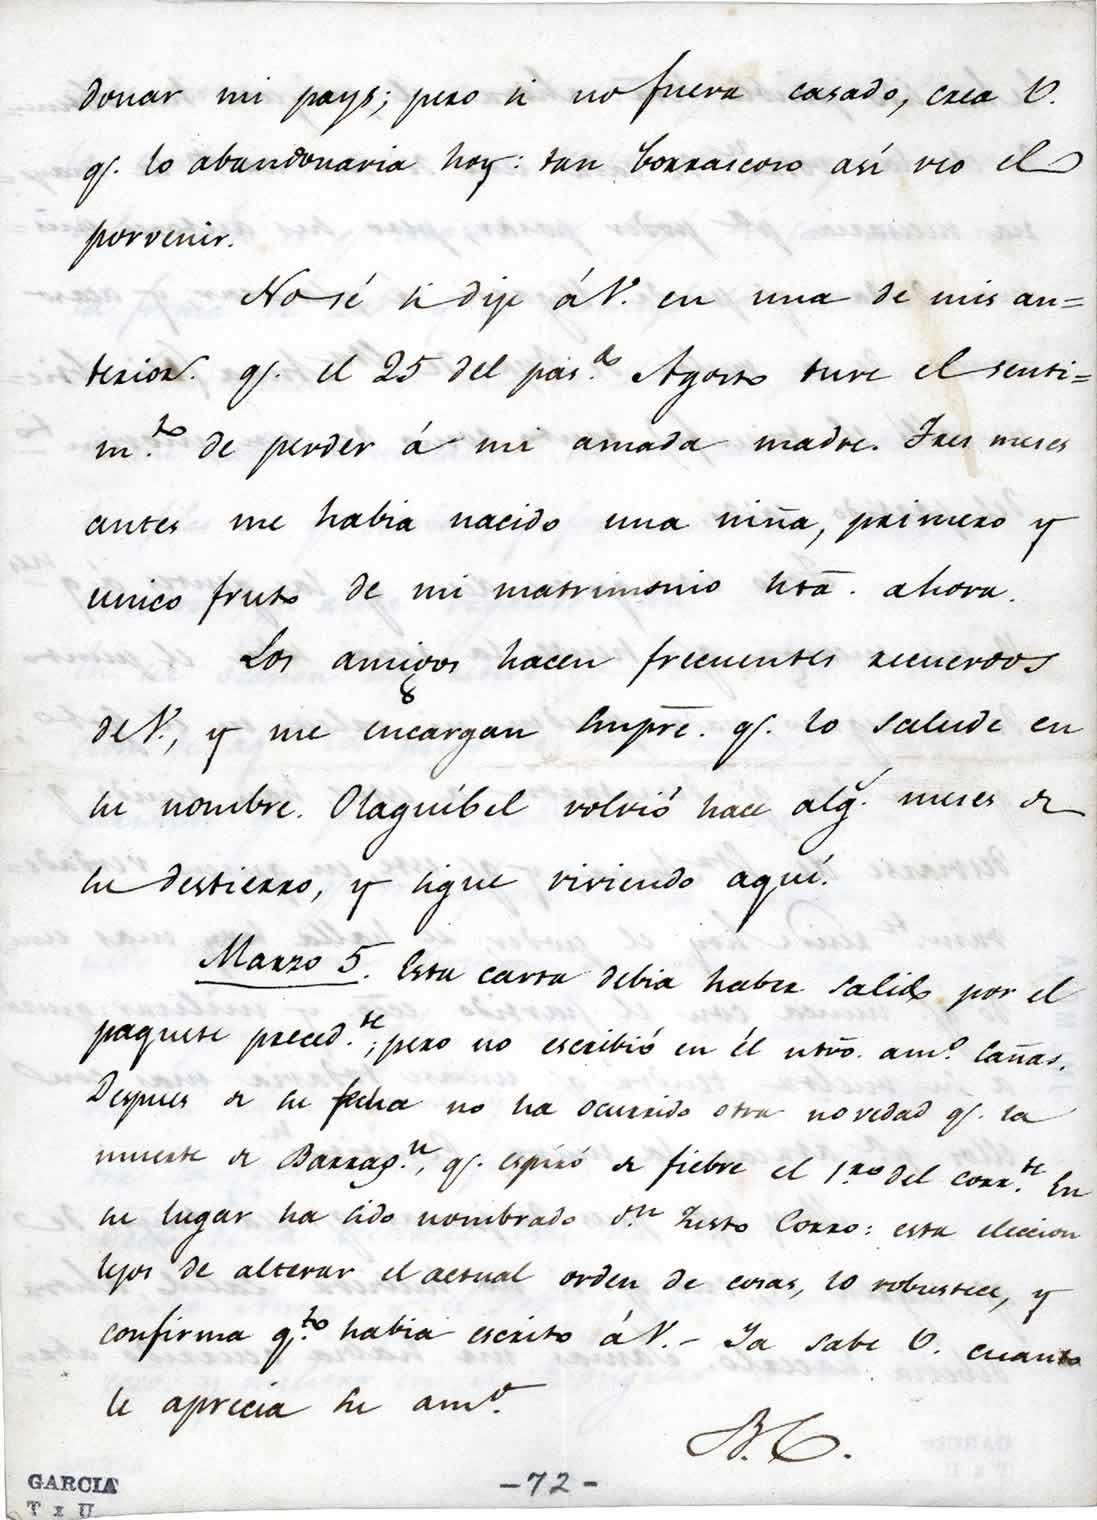 donar mi pays; pero si no fuera casado, crea V.
q.ᵉ lo abandonaria hoy: tan borrascoso así veo el
porvenir.
No sé si dije á V. en una de mis an=
terior.ˢ q.ᵉ el 25 del pas.ᵈᵒ Agosto tuve el senti=
m.ᵗᵒ de perder á mi amada madre. Tres meses
antes me habia nacido una niña, primero y
unico fruto de mi matrimonio htã. ahora.
Los amigos hacen frecuentes recuerdos
de V., y me encargan simpre. q.ᵉ lo salude en
su nombre. Olaguíbel volvió hace alg.ˢ meses de
su destierro, y sigue viviendo aquí.
Marzo 5. Esta carta debia haber salido por el
paquete preced.ᵗᵉ; pero no escribió en él ntrõ. am.º Cañas.
Despues de su fecha no ha ocurrido otra novedad q.ᵉ la
muerte de Barrag.ⁿ, q.ᵉ espiró de fiebre el 1.ʳᵒ del corr.ᵗᵉ En
su lugar ha sido nombrado d.ⁿ Justo Corro: esta eleccion
lejos de alterar el actual orden de cosas, lo robustece, y
confirma q.ᵗᵒ habia escrito á V. – Ya sabe V. cuanto
le aprecia su am.º
B. C.
–72–
GARCIA
T x U